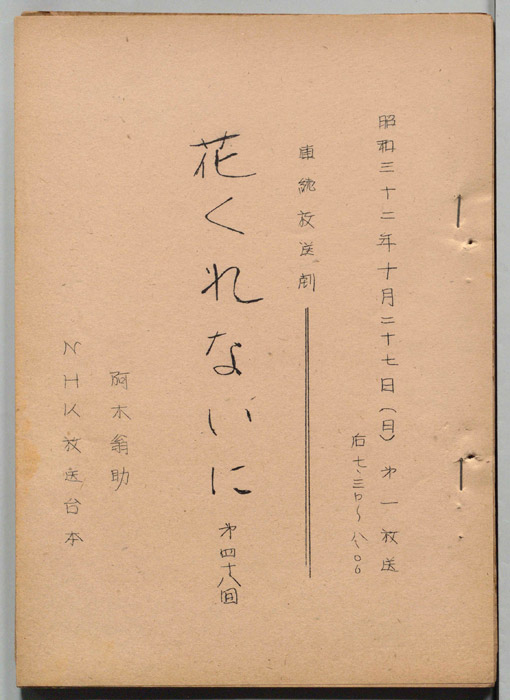 昭和三十二年十月二十七日(日)第一放送
后七、三〇〜八、〇〇
連続放送劇
花くれないに
第四十八回
阿木翁助
NHK放送台本